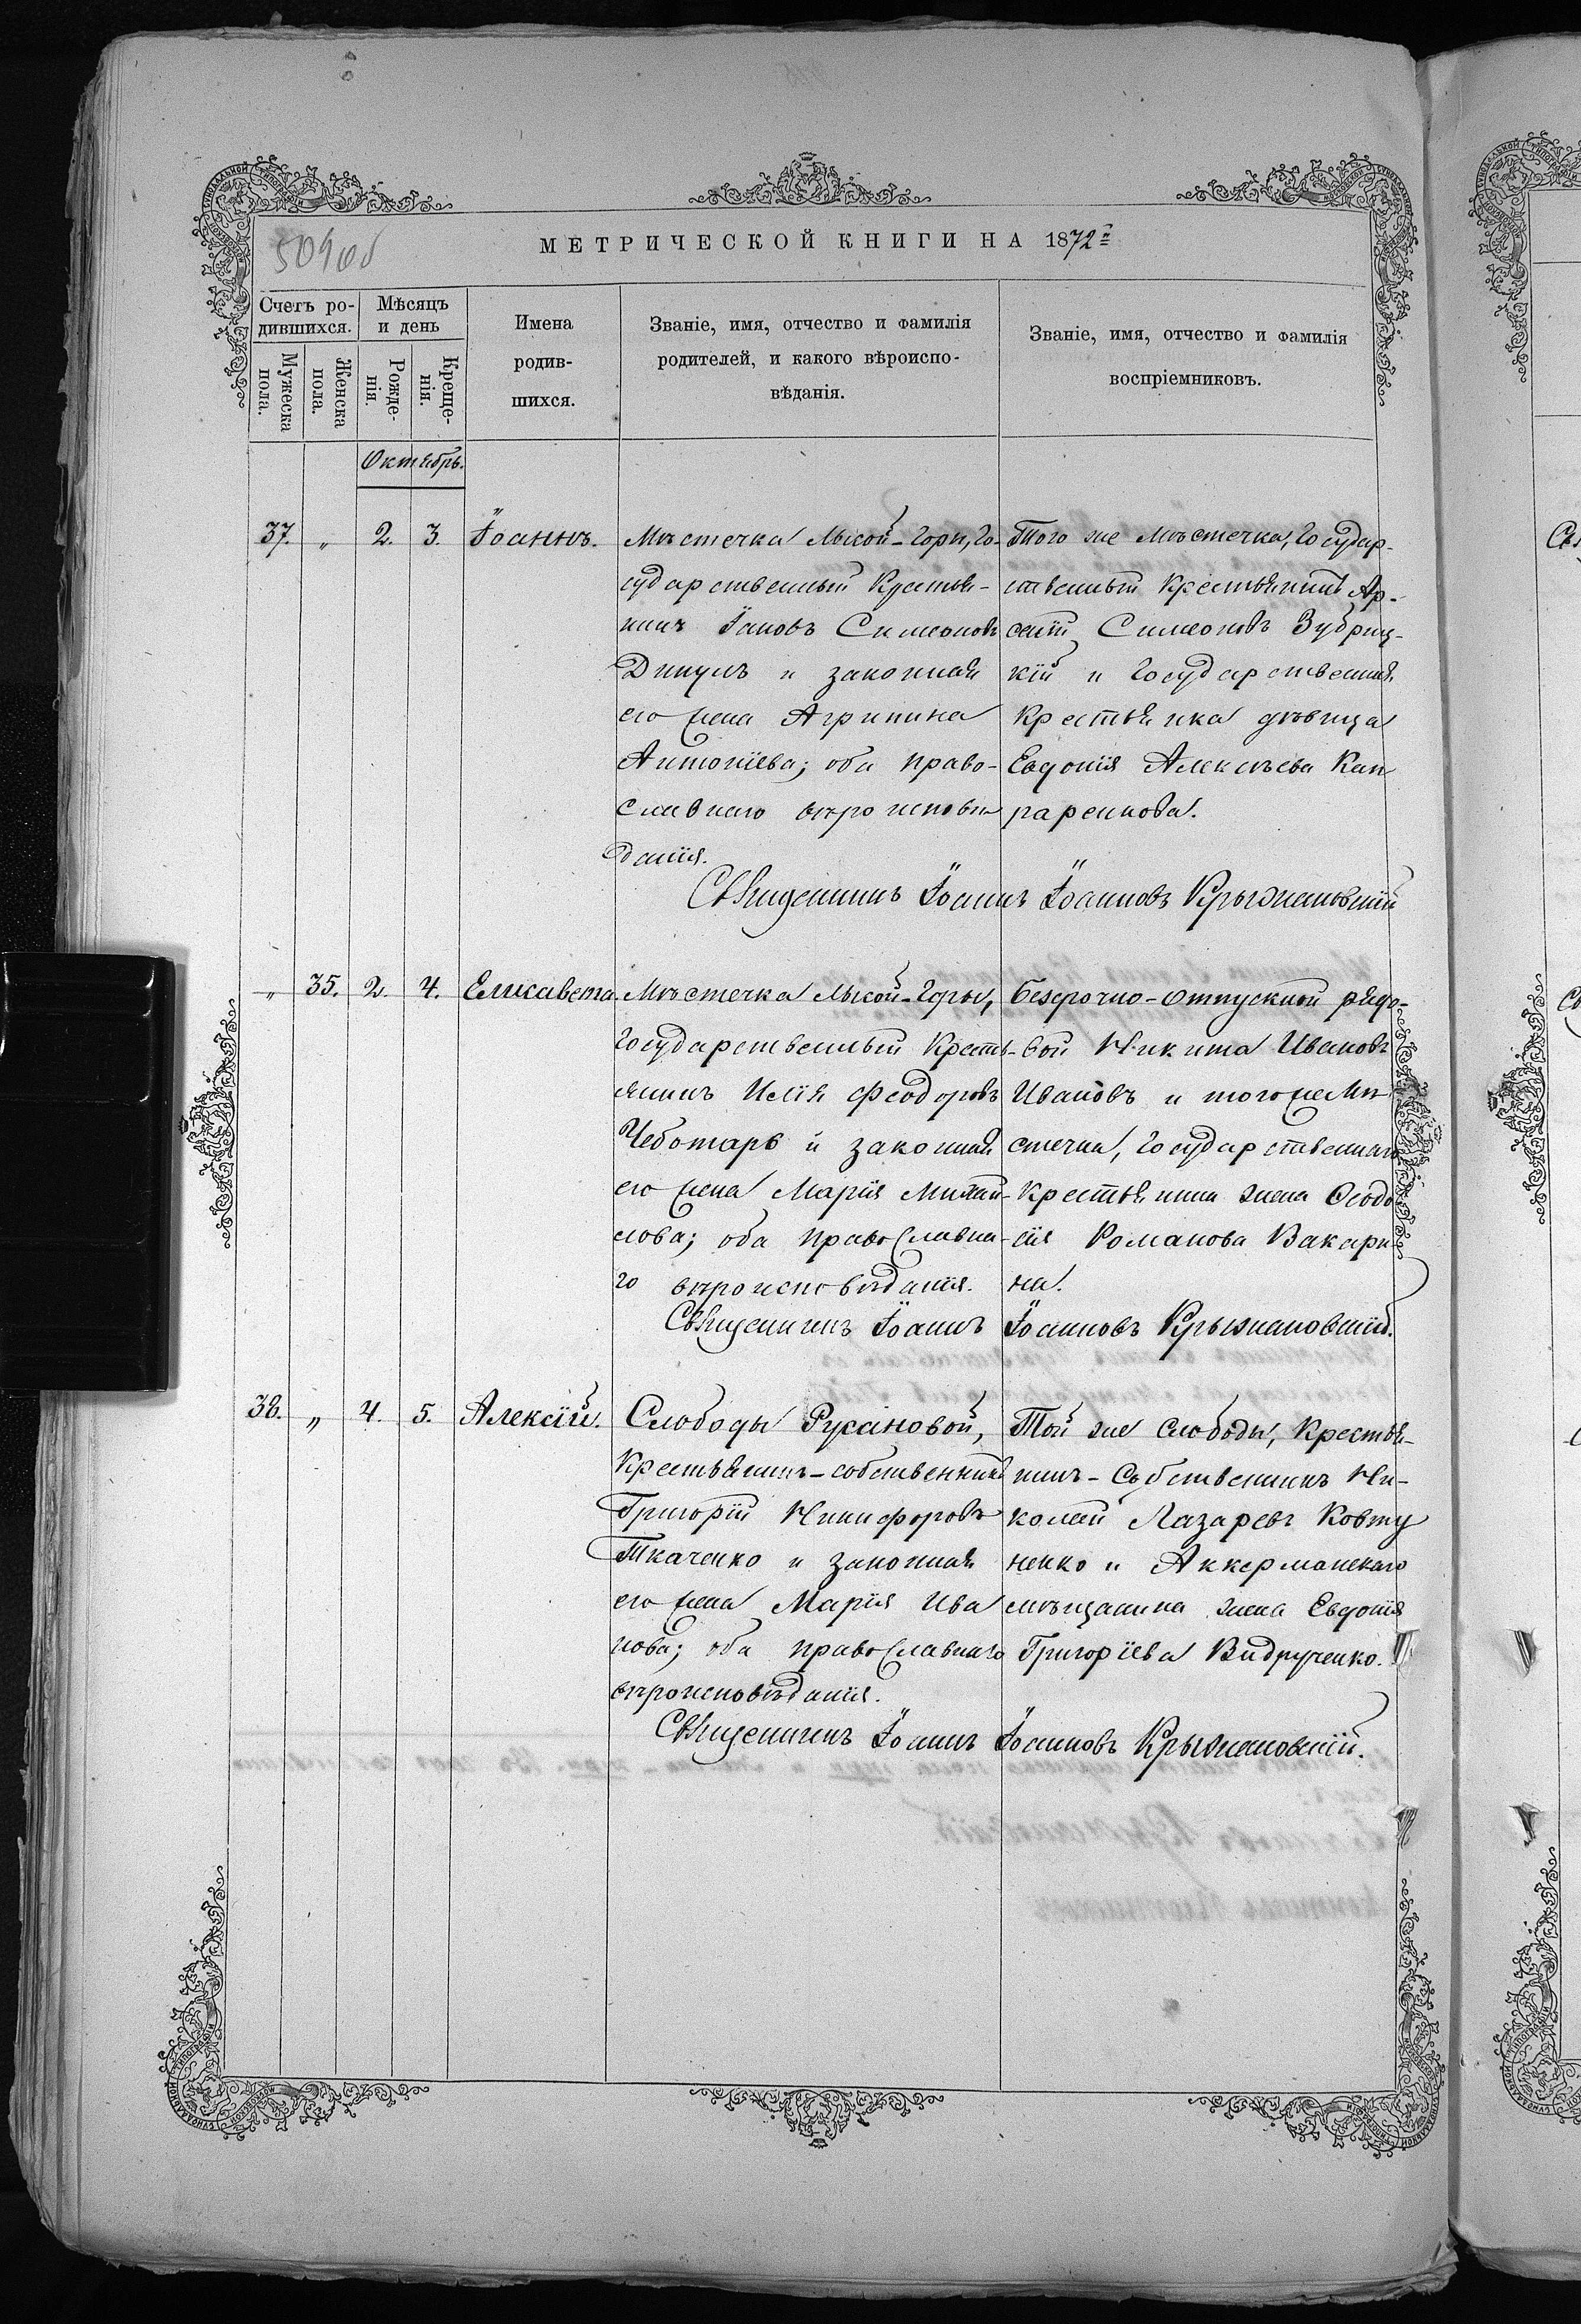 504об
МЕТРИЧЕСКОЙ КНИГИ НА 1872й
Счетъ ро-
дившихся.
Мѣсяцъ
и день
Мужеска
пола.
Женска
пола.
Рожде-
нія.
Креще-
нія.
Имена
родив-
шихся.
Званіе, имя, отчество и фамилія
родителей, и какого вѣроиспо-
вѣданія.
Званіе, имя, отчество и фамилія
воспріемниковъ.
Октябрь.
37. „ 2. 3. Іоаннъ.
Мѣстечка Лысой-Горы, Го-
сударственный Крестья-
нинъ Іаковъ Симеоновъ
Дикулъ и законная
его жена Агрипина
Антоніева; оба право-
славнаго вѣроисповѣ
данія.
Того же Мѣстечка, Государ-
ственный Крестьянинъ Ар-
сеній Симеоновъ Зубриц-
кій и Государственная
Крестьянка дѣвица
Евдокія Алексѣева Кап
раренкова.
Священникъ Іоаннъ Іоанновъ Крыжановскій
„ 35. 2. 4. Елисавета.
Мѣстечка Лысой-Горы,
Государственный Кресть-
янинъ Илія Феодоровъ
Чеботарь и законная
его жена Марія Михаи-
лова; оба православна-
го вѣроисповѣданія.
Безсрочно-отпускной рядо-
вой Никита Ивановъ
Ивановъ и того же Мѣ-
стечка, Государственнаго
Крестьянина жена Феодо
сія Романова Вакари-
на.
Священникъ Іоаннъ Іоанновъ Крыжановскій.
38. „ 4. 5. Алексій.
Слободы Русановой,
Крестьянинъ-собственникъ
Григорій Никифоровъ
Ткаченко и законная
его жена Марія Ива
нова; оба православнаго
вѣроисповѣданія.
Той же Слободы, Крестья-
нинъ-Собственникъ Ни-
колай Лазаревъ Ковту
ненко и Аккерманскаго
мѣщанина жена Евдокія
Григоріева Видрученко.
Священникъ Іоаннъ Іоанновъ Крыжановскій.